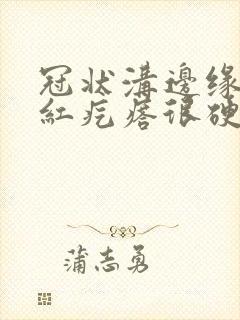 冠状溝邊缘
紅疙瘩很硬
蒲志勇